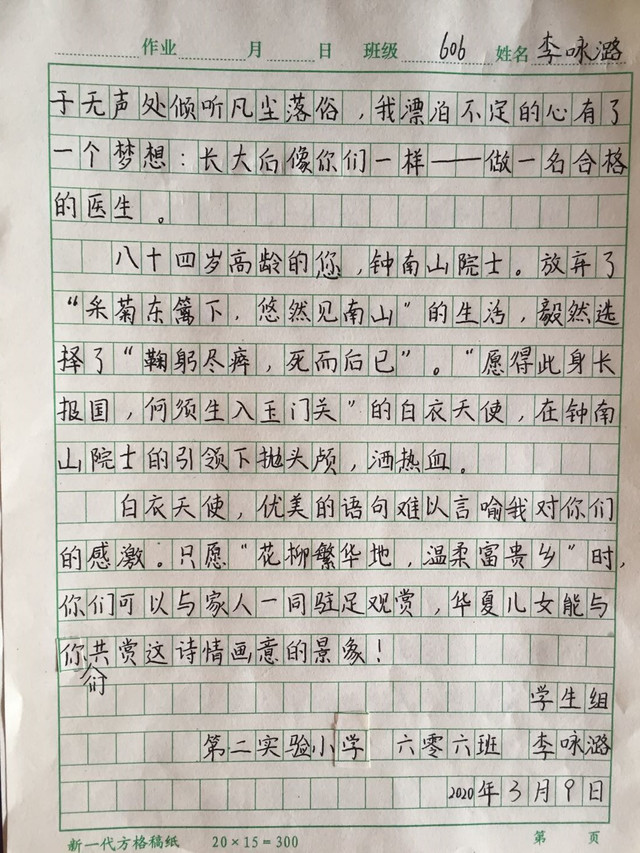 作业 月 日 班级 606 姓名 李咏潞
于无声处倾听凡尘落俗，我漂泊不定的心有了
一个梦想：长大后像你们一样——做一名合格
的医生。
八十四岁高龄的您，钟南山院士。放弃了
“采菊东篱下，悠然见南山”的生活，毅然选
择了“鞠躬尽瘁，死而后已”。“愿得此身长
报国，何须生入玉门关”的白衣天使，在钟南
山院士的引领下抛头颅，洒热血。
白衣天使，优美的语句难以言喻我对你们
的感激。只愿“花柳繁华地，温柔富贵乡”时，
你们可以与家人一同驻足观赏，华夏儿女能与
你们共赏这诗情画意的景象！
学生组
第二实验小学 六零六班 李咏潞
2020年3月9日
新一代方格稿纸 20×15=300 第 页